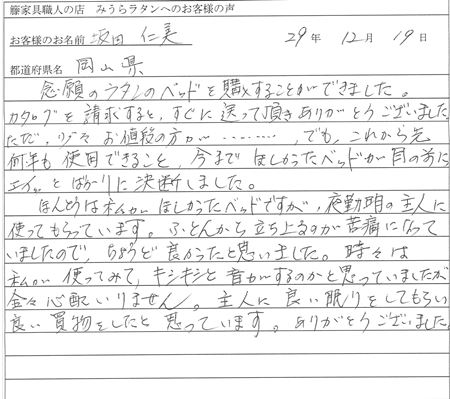 籐家具職人の店　みうらラタンへのお客様の声
お客様のお名前 坂田 仁美　29年 12月 19日
都道府県名 岡山県
念願のラタンのベッドを購入することができました。
カタログを請求すると、すぐに送って頂きありがとうございました
ただ、少々お値段の方が………、でも、これから先
何年も使用できること、今までほしかったベッドが目の前に
エイッとばかりに決断しました。
ほんとうは私がほしかったベッドですが、夜勤明の主人に
使ってもらっています。ふとんから立ち上るのが苦痛になって
いましたので、ちょうど良かったと思いました。時々は
私が使ってみて、キシキシと音がするのかと思っていましたが
全々心配いりません。主人に良い眠りをしてもらい
良い買物をしたと思っています。ありがとうございました